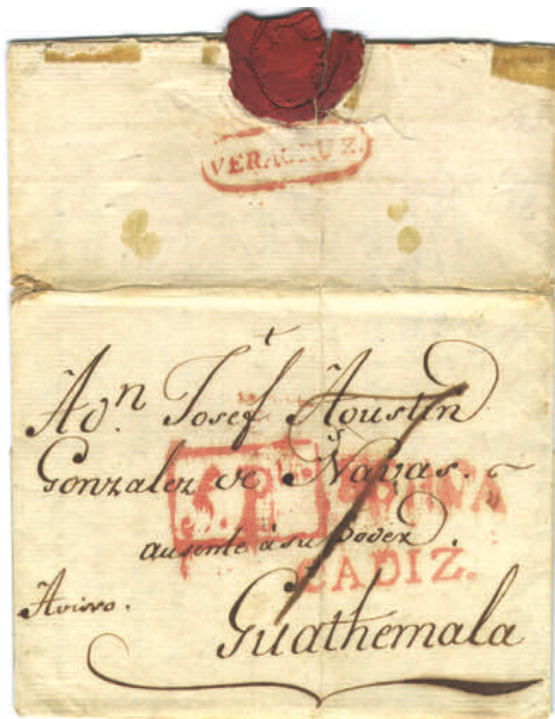 VERACRUZ.
A Dn. Josef Agustin
Gonzalez de Navas.
7
ausente â su Poder.
CADIZ.
Aviso.
Guathemala